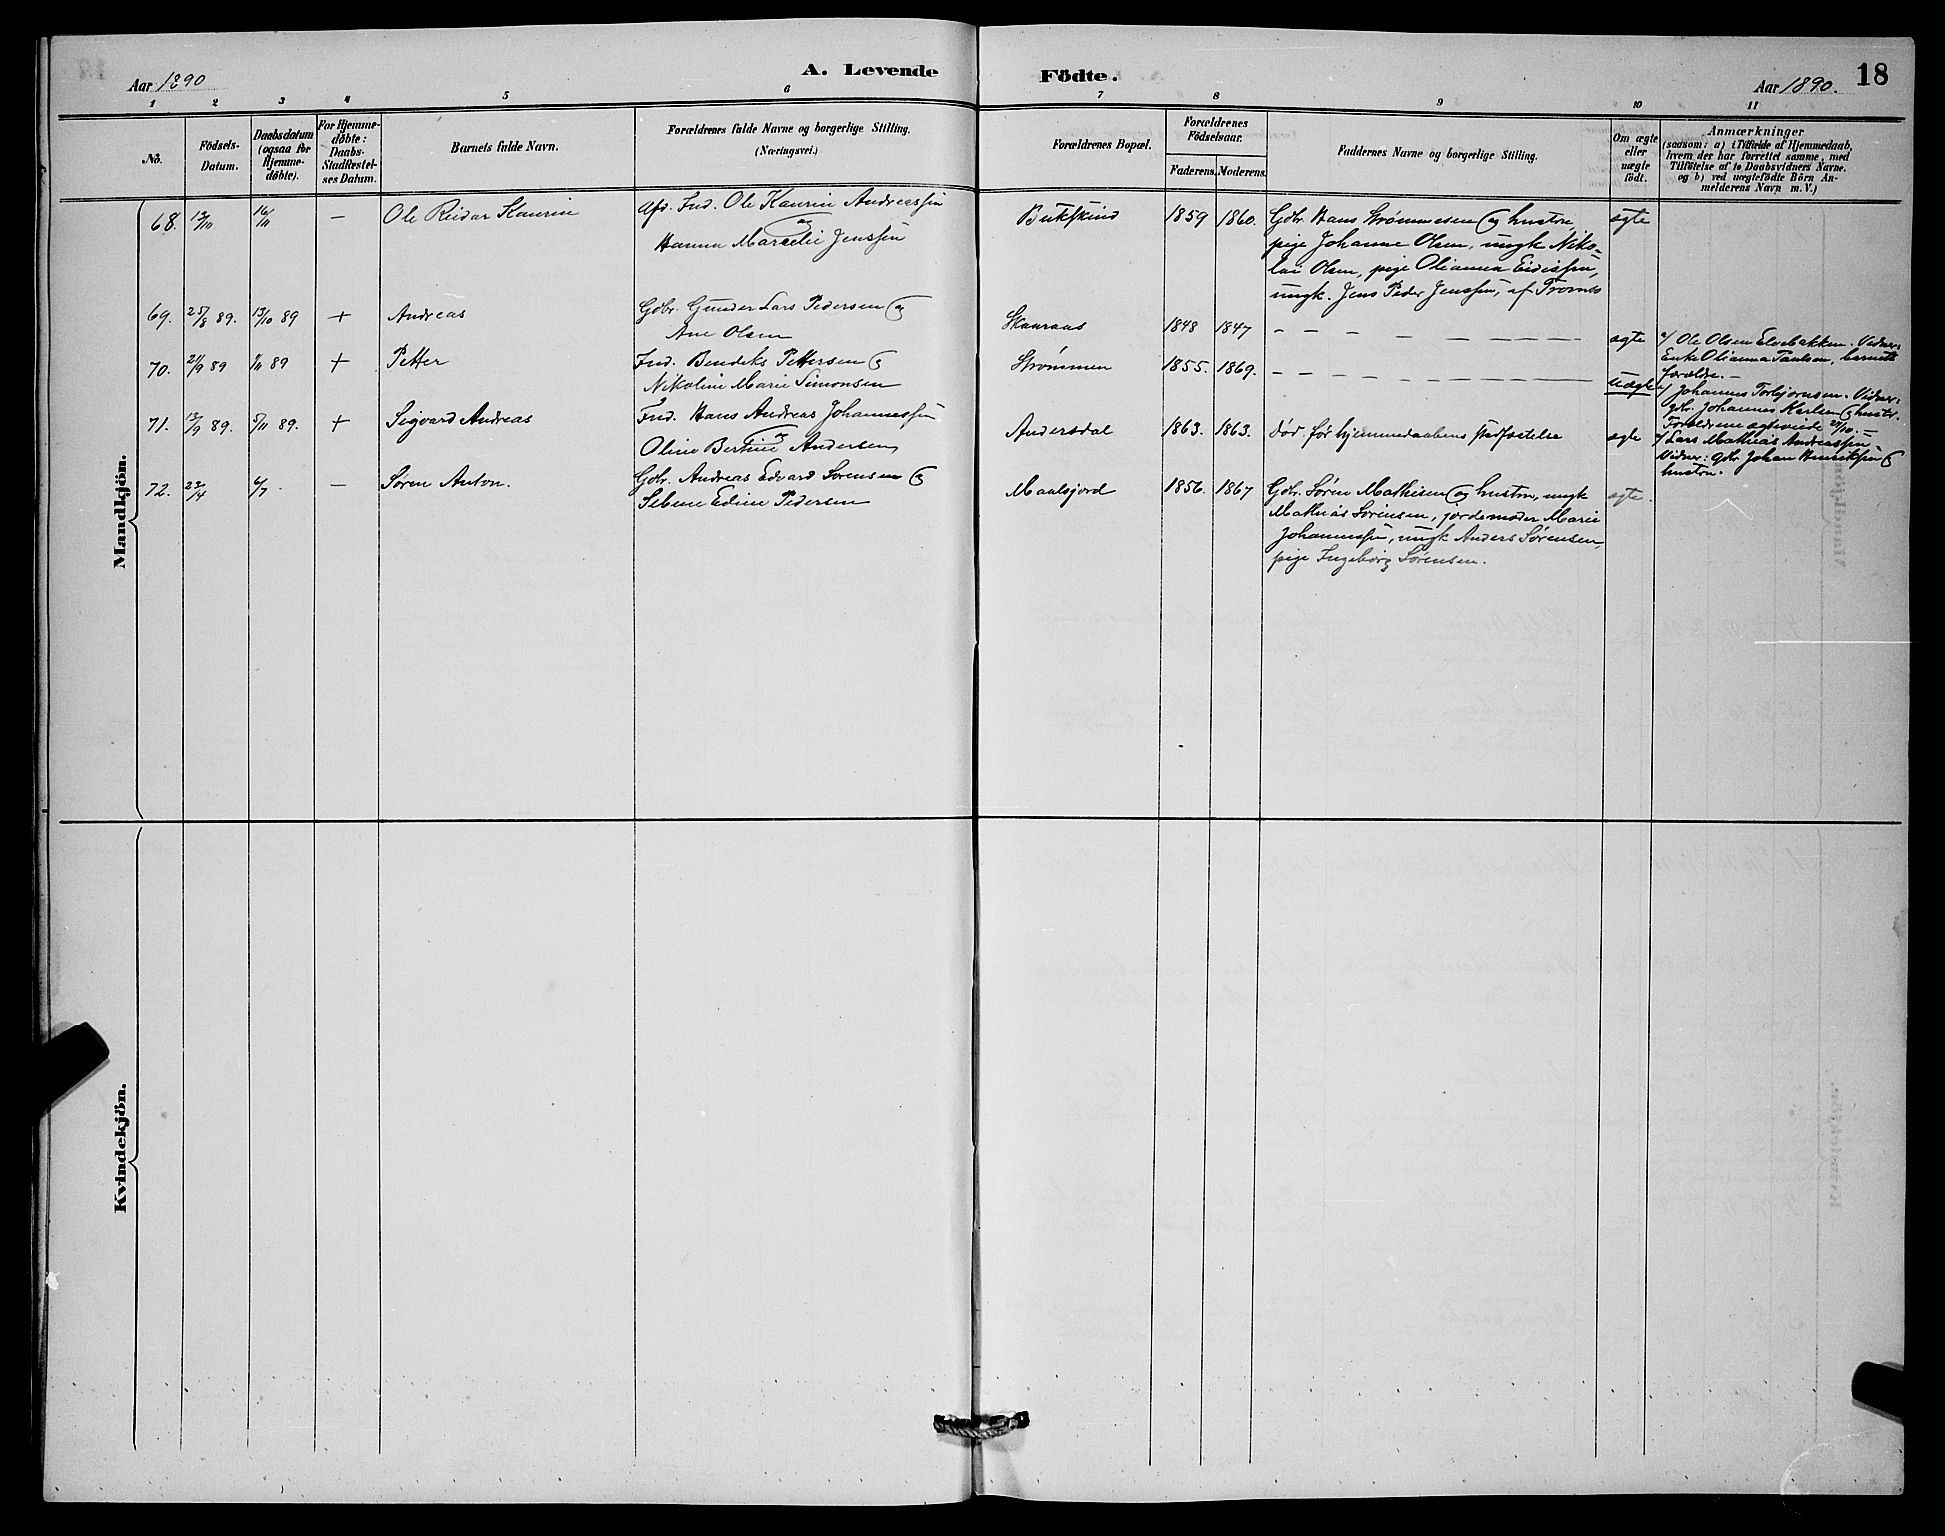 Aar 1890
A. Levende Födte.
Aar 1890.
18
1 2 3 4 5 6 7 8 9 10 11
Nô.
Födsels-
Datum.
Daabsdatum
(ogsaa for
Hjemme-
döbte).
For Hjemme-
döbte:
Daabs-
Stadfæstel-
ses Datum.
Barnets fulde Navn.
Forældrenes fulde Navne og borgerlige Stilling.
(Næringsvei.)
Forældrenes Bopæl.
Forældrenes
Födselsaar.
Faderens. Moderens.
Faddernes Navne og borgerlige Stilling.
Om ægte
eller
uægte
födt.
Anmærkninger
(saasom: a) i Tilfælde af Hjemmedaab,
hvem der har forrettet samme, med
Tilföielse af to Daabsvidners Navne.
og b) ved uægtefödte Börn An-
melderens Navn m. V.)
Mandkjön.
68. 13/10 16/11 — Ole Reidar Kaurin
Afd. Ind. Ole Kaurin Andreassen
og
Hanna Marcelie Jenssen
Bukskind 1859 1860.
Gdbr. Hans Strømmesen og hustru,
pige Johanne Olsen, ungk Niko-
lai Olsen, pige Olianna Eidissen,
ungk. Jens Peder Jenssen, af Tromsø
ægte
69. 25/8 89. 13/10 89 + Andreas
Gdbr. Gunder Lars Pedersen og
Ane Olsen
Skaaraas 1848 1847 — — — — — — — —
ægte
a/ Ole Olsen Elvebakken. Vidner:
Enke Olianna Paulsen, barnets
forældre. —
70. 21/9 89 1/11 89 + Petter
Ind. Bendeks Pettersen og
Nikoline Marie Simonsen
Strømmen 1855. 1869. — — — — — — — —
Uægte
a/ Johannes Torbjørnsen. Vidner:
gdbr. Johannes Karlsen og hustr.
Forældrene ægteviede 20/10. —
71. 13/9 89. 5/11 89. + Sigvard Andreas
Ind. Hans Andreas Johannessen
og
Oline Bertine Andersen
Andersdal 1863. 1863. Død før hjemmedaabens stadfæstelse
ægte
a/ Lars Mathias Andreassen
Vidner: gdbr Johan Henriksen og
hustru.
72. 22/4 6/7 — Søren Anton.
Gdbr. Andreas Edvard Sørensen og
Sebine Edine Pedersen
Maalsjord 1856. 1867
Gdbr. Søren Mathisen og hustru, ungk
Mathias Sørensen, jordemoder Marie
Johannessen, ungk Anders Sørensen,
pige Ingeborg Sørensen.
ægte.
Kvindekjön.